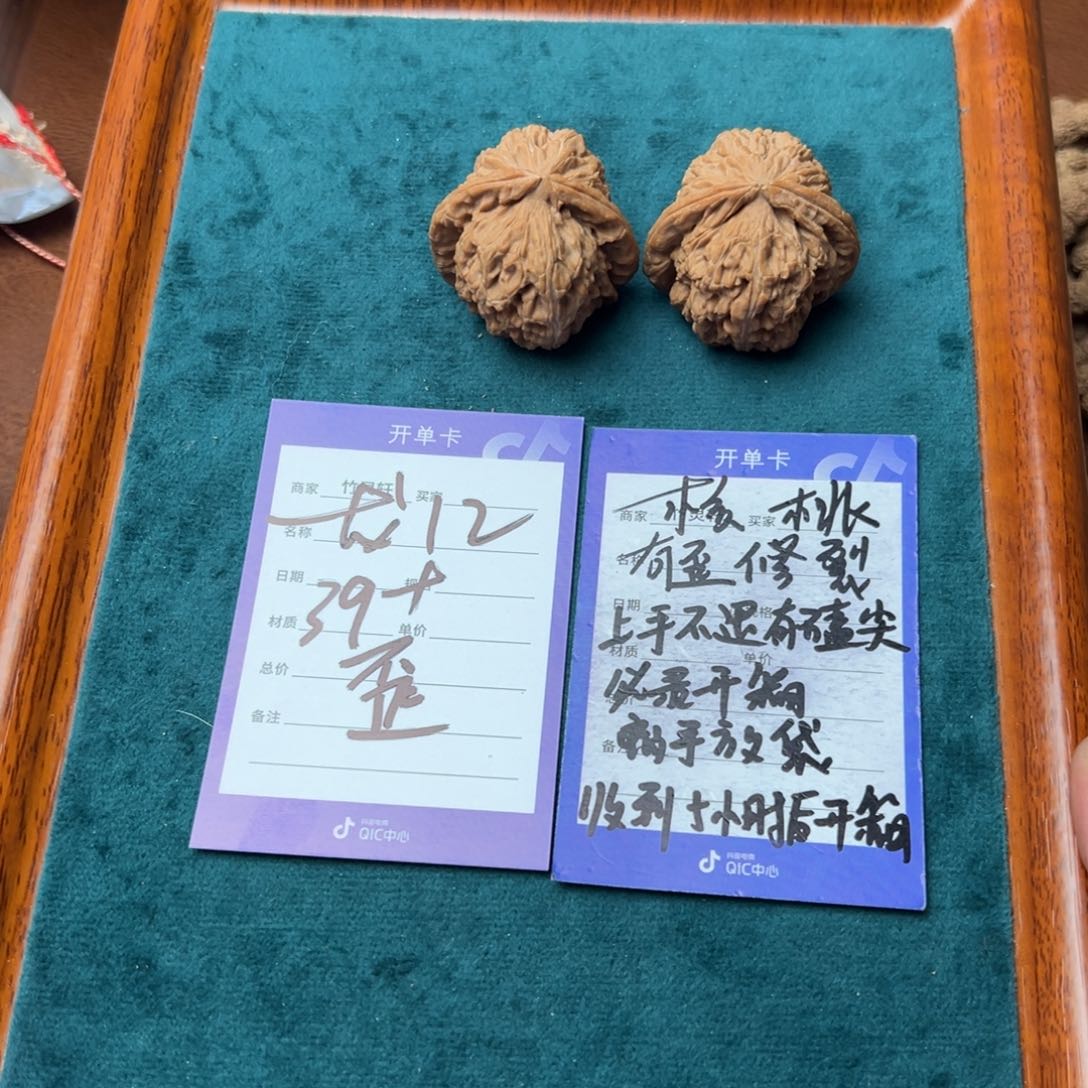 开单卡
商家 竹灵轩 买家
名称
日期
材质 单价
总价
备注
龙12
39+
歪
抖音电商
QIC中心
开单卡
商家 买家
名称
日期
材质 单价
备注
核桃
有歪修裂
上手不退有磕尖
必录开箱
到手放袋
收到十小时后开箱
抖音电商
QIC中心